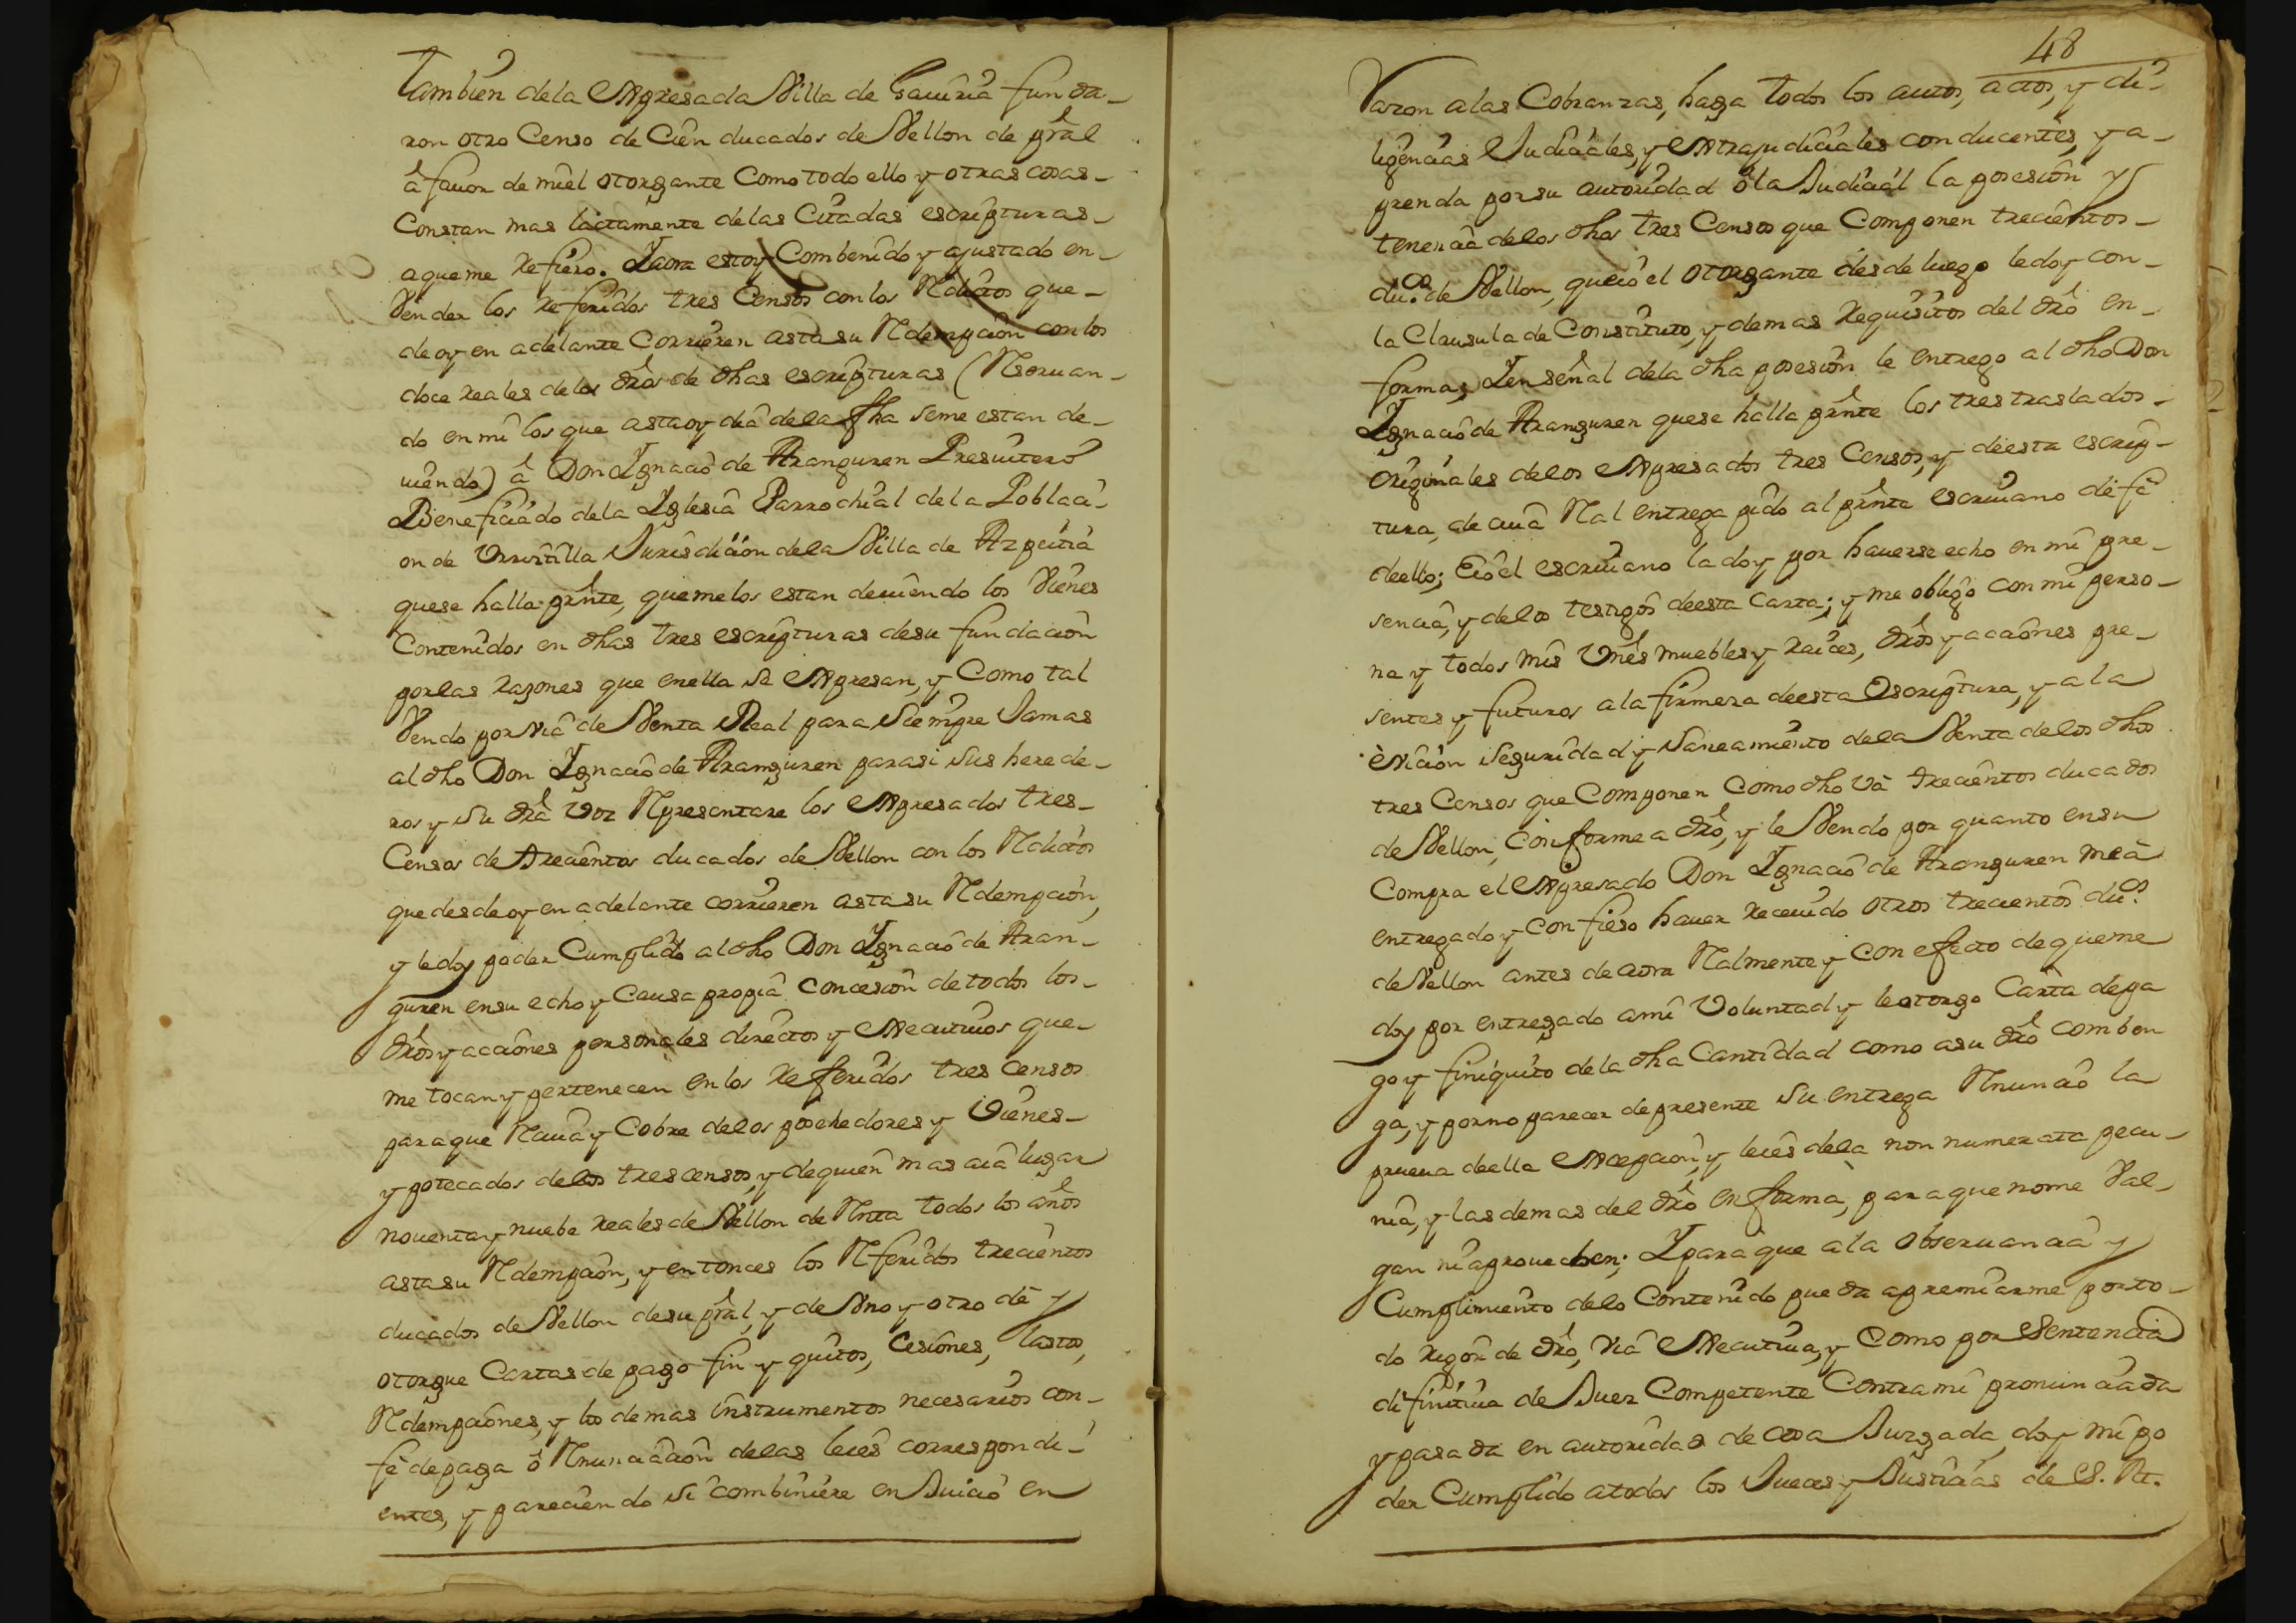 tambien dela expresada Villa de Gauiria funda-
ron otro Censo de Cien ducados de Vellon de pral
â fauor de mi el otorgante como todo ello y otras cosas-
Constan mas lactamente delas Citadas escripturas-
aqueme refiero. Yaora estoy Combenido y ajustado en-
Vender los referidos tres Censos con los Reditos que-
de oy en adelante Corrieren asta su Redempcion con los
doce reales delos dros de dhas escripturas (Reseruan-
do en mi los que asta oy dia dela fha seme estan de-
uiendo) â Don Ygnacio de Aranguren Presuitero
Beneficiado dela Yglesia Parrochial dela Poblaci-
on de Vrrestilla Jurisdicion dela Villa de Azpeitia
quese halla presnte, quemelos estan deuiendo los Vienes
Contenidos en dhas tres escripturas desu fundacion
porlas razones que enella se expresan, y Como tal
Vendo por via de Venta Real para Siempre Jamas
al dho Don Ygnacio de Aranguren parasi sus herede-
ros y su dra voz Representare los expresados tres-
Censos de trecientos ducados de Vellon con los Reditos
que desde oy en adelante corrieren asta su Redempcion,
y ledoy poder Cumplido al dho Don Ygnacio de Aran-
guren ensu echo y Causa propia concesion de todos los-
dros y acciones personales directos y executiuos que-
me tocan y pertenecen enlos referidos tres censos
paraque Reciua y Cobre delos posehedores y Vienes-
ypotecados delos tres censos, y dequien mas aia lugar
nouenta y nuebe reales de Vellon de Renta todos los años
asta su Redempcion, y entonces los Referidos trecientos
ducados de Vellon desu pral, y de Vno y otro dê y
otorgue Cartas de pago fin y quitos, Cesiones, lastos,
Redempciones, y los demas instrumentos necesarios con-
fê depaga ô Renunciacion delas leies correspondi-
entes, y pareciendo si combiniere en Juicio en
48
razon alas Cobranzas, haga todos los autos, actos, y di-
ligencias Judiciales, y extrajudiciales conducentes, y a-
prenda por su autoridad ô la Judicial la posesion y
tenencia delos dhos tres Censos que Componen trecientos-
duos. de Vellon, que io el otorgante desde luego ledoy con-
la Clausula de Constituto, y demas requisitos del dro en-
forma; Y en señal dela dha posesion le entrego al dho Don
Ygnacio de Aranguren quese halla presnte los tres traslados-
Originales delos expresados tres Censos, y deesta escrip-
tura, de cuia Real entrega pido al presnte escriuano de fê
deello; E io el escriuano la doy por hauerse echo en mi pre-
sencia, y delos testigos deesta Carta; y me obligo con mi perso-
na y todos mis Vnes muebles y raices, dros y acciones pre-
sentes y futuros ala firmeza deesta Escriptura, y ala
eviccion Seguridad y Saneamiento dela Venta delos dhos
tres Censos que Componen Como dho vâ trecientos ducados
de Vellon, Conforme a dro, y le Vendo por quanto ensu
Compra el expresado Don Ygnacio de Aranguren meâ
entregado y Confieso hauer receuido otros trecientos duos.
de Vellon antes de aora Realmente y Con efecto de queme
doy por entregado ami Voluntad y leotorgo Carta depa
go y finiquito dela dha Cantidad como asu dro comben
ga, y porno parecer depresente Su entrega Renuncio la
prueua deella excepcion, y leies dela non numerata pecu-
nia, y las demas del dro en forma, paraque nome Val-
gan ni aprouechen; Y paraque ala obseruancia y
Cumplimiento delo Contenido pueda apremiarme porto-
do rigor de dro, via executiua, y Como por Sentencia
difinitiua de Juez Competente Contra mi pronunciada
y pasada en autoridad de cosa Juzgada, doy mi po
der Cumplido atodos los Jueces y Justicias de S. M.